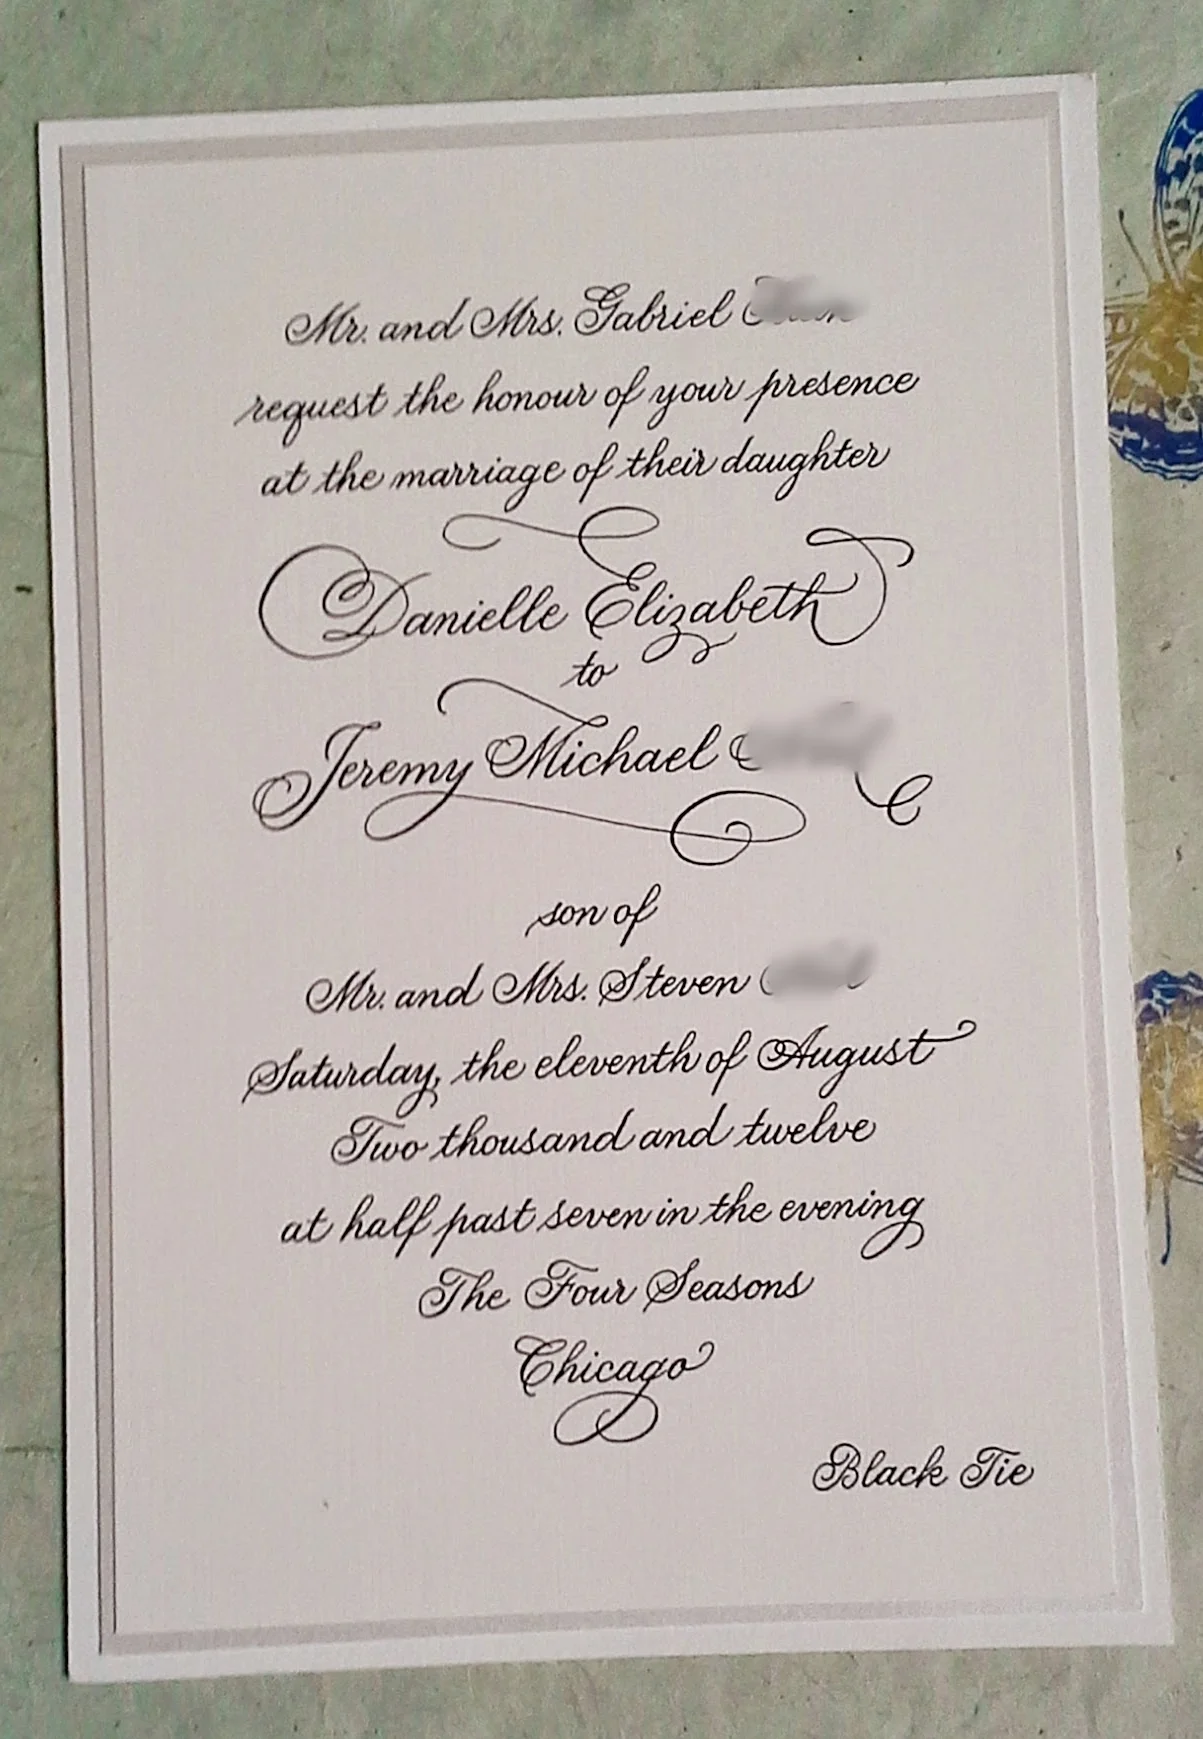 Mr. and Mrs. Gabriel
request the honour of your presence
at the marriage of their daughter
Danielle Elizabeth
to
Jeremy Michael
son of
Mr. and Mrs. Steven
Saturday, the eleventh of August
Two thousand and twelve
at half past seven in the evening
The Four Seasons
Chicago
Black Tie